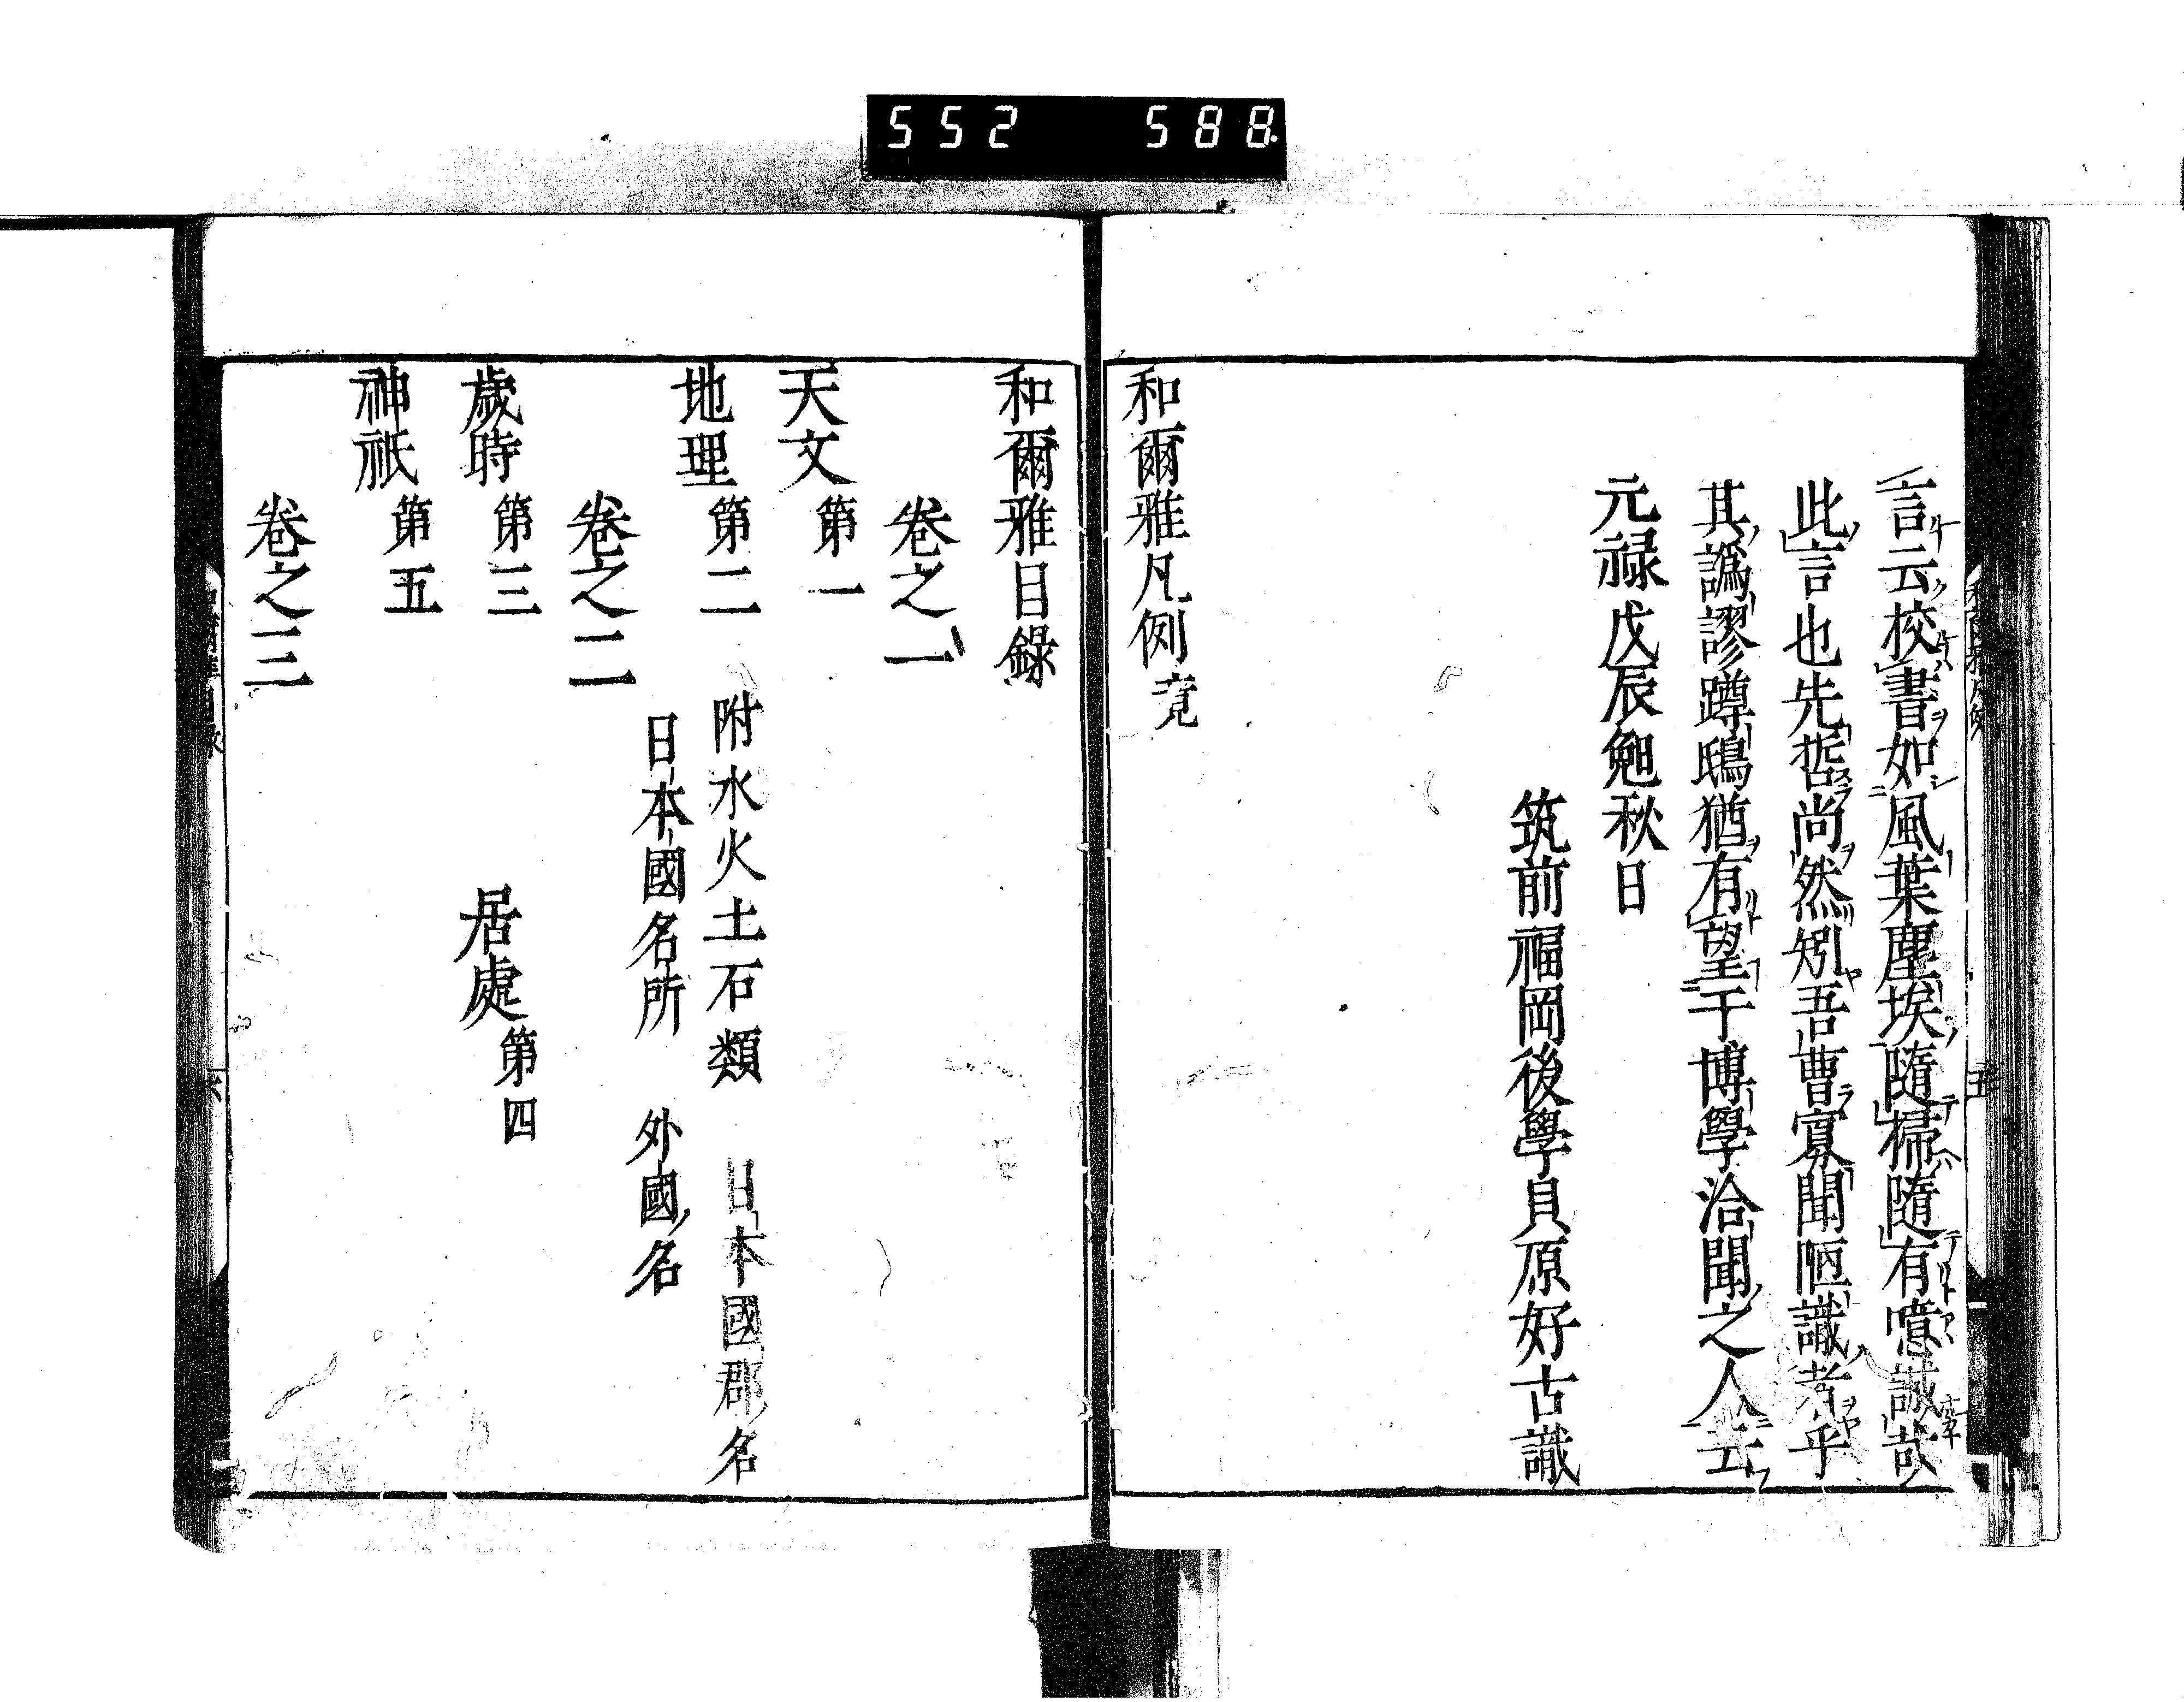 552 588
言云校書如風葉塵埃隨掃隨有噫誠哉
此言也先哲尚然矧吾曹寡聞陋識者乎
其譌謬蹲鴟猶有望于博學洽聞之人云
元禄戊辰匏秋日
筑前福岡後學貝原好古識
和爾雅凡例竟
和爾雅目錄
卷之一
天文第一
地理第二 附水火土石類 日本國郡名
日本國名所 外國名
卷之二
歲時第三 居處第四
神祇第五
卷之三